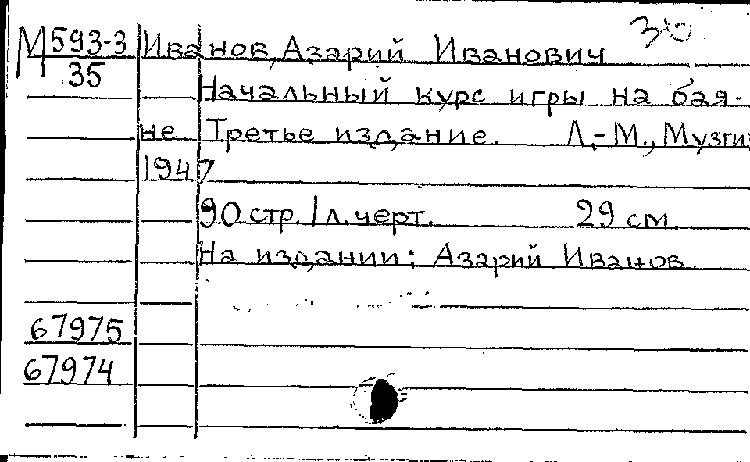 30
М 593-3 Иванов, Азарий Иванович
35
Начальный курс игры на бая-
не. Третье издание. Л.-М., Музгиз
1947
90 стр. 1 л. черт. 29 см.
На издании: Азарий Иванов
67975
67974